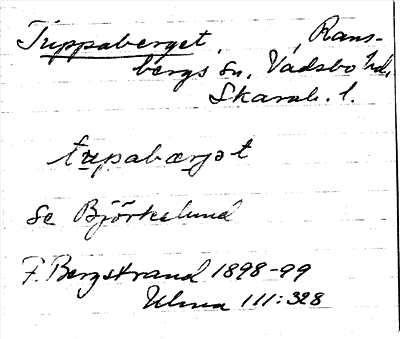 Tuppaberget, Rans-
bergs sn, Vadsbo hd,
Skarab. l.
tupabærjət
se Björkelund
F. Bergstrand 1898-99
Ulma 111:328